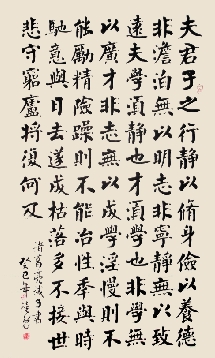 夫君子之行静以脩身儉以養德
非澹泊無以明志非寧静無以致
遠夫學須静也才須學也非學無
以廣才非志無以成學淫慢則不
能勵精險躁則不能冶性年與時
馳意與日去遂成枯落多不接世
悲守窮廬將復何及
諸葛亮誡子書
癸巳年